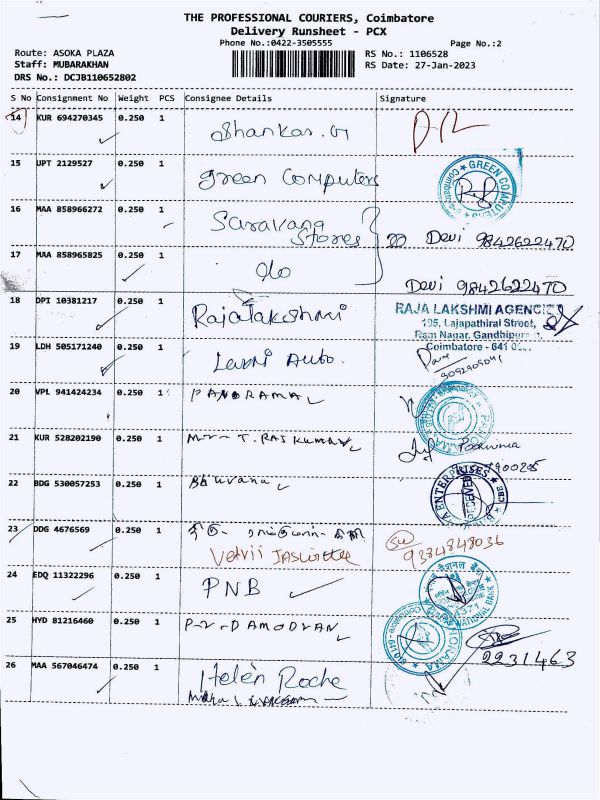 THE PROFESSIONAL COURIERS, Coimbatore
Delivery Runsheet - PCX
Phone No.:0422-3505555
Page No.:2
Route: ASOKA PLAZA
RS No.: 1106528
Staff: MUBARAKHAN
RS Date: 27-Jan-2023
DRS No.: DCJB110652802
S No Consignment No Weight PCS Consignee Details Signature
14 KUR 694270345 0.250 1 Shankar. G
15 UPT 2129527 0.250 1 Green Computers GREEN COMPUTERS
16 MAA 858966272 0.250 1 Saravana Stores Devi 9842622470
17 MAA 858965825 0.250 1 do Devi 9842622470
18 DPI 10381217 0.250 1 Rajalakshmi RAJA LAKSHMI AGENCIE
195, Lajapathirai Street,
Ram Nagar, Gandhipuram
Coimbatore - 641
19 LDH 505171240 0.250 1 Laxmi Auto.
20 VPL 941424234 0.250 1 PANORAMA
21 KUR 528202190 0.250 1 Mr. T. RAJKUMAR
22 BDG 530057253 0.250 1 Bhuvana ENTERPRISES RECEIVED CBE
23 DDG 4676569 0.250 1 9384848036
24 EDQ 11322296 0.250 1 PNB पंजाब नैशनल बैंक PUNJAB NATIONAL BANK
25 HYD 81216460 0.250 1 P.V. DAMODRAN PANORAMA 2231463
26 MAA 567046474 0.250 1 Helen Roche